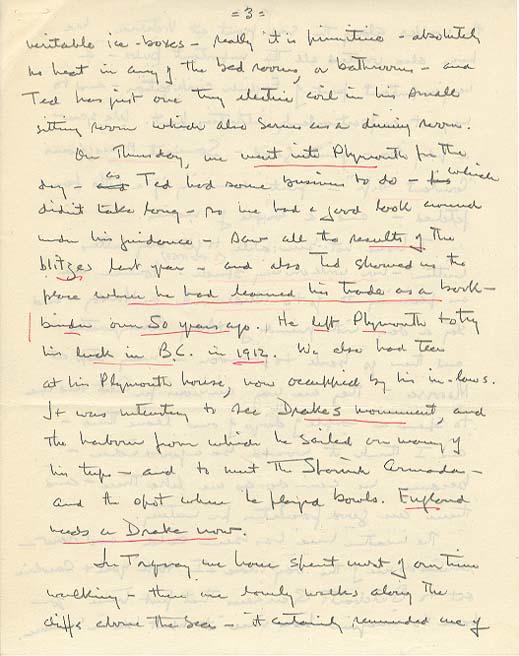 = 3 =
veritable ice-boxes - really it is primitive - absolutely
no heat in any of the bed rooms, or bathrooms - and
Ted has just one tiny electric coil in his small
sitting room which also serves as a dining room.
On Thursday, we went into Plymouth for the
day - as Ted had some business to do - which
didn't take long - so we had a good look around
under his guidance - saw all the results of the
blitzes last year - and also Ted showed us the
place where he had learned his trade as a book-
binder over 50 years ago. He left Plymouth to try
his luck in B.C. in 1912. We also had tea
at his Plymouth house, now occupied by his in-laws.
It was interesting to see Drake's monument, and
the harbour from which he sailed on many of
his trips - and to meet the Spanish Armada -
and the spot where he played bowls. England
needs a Drake now.
In we have spent most of our time
walking - there are lovely walks along the
cliffs above the sea - it certainly reminded me of